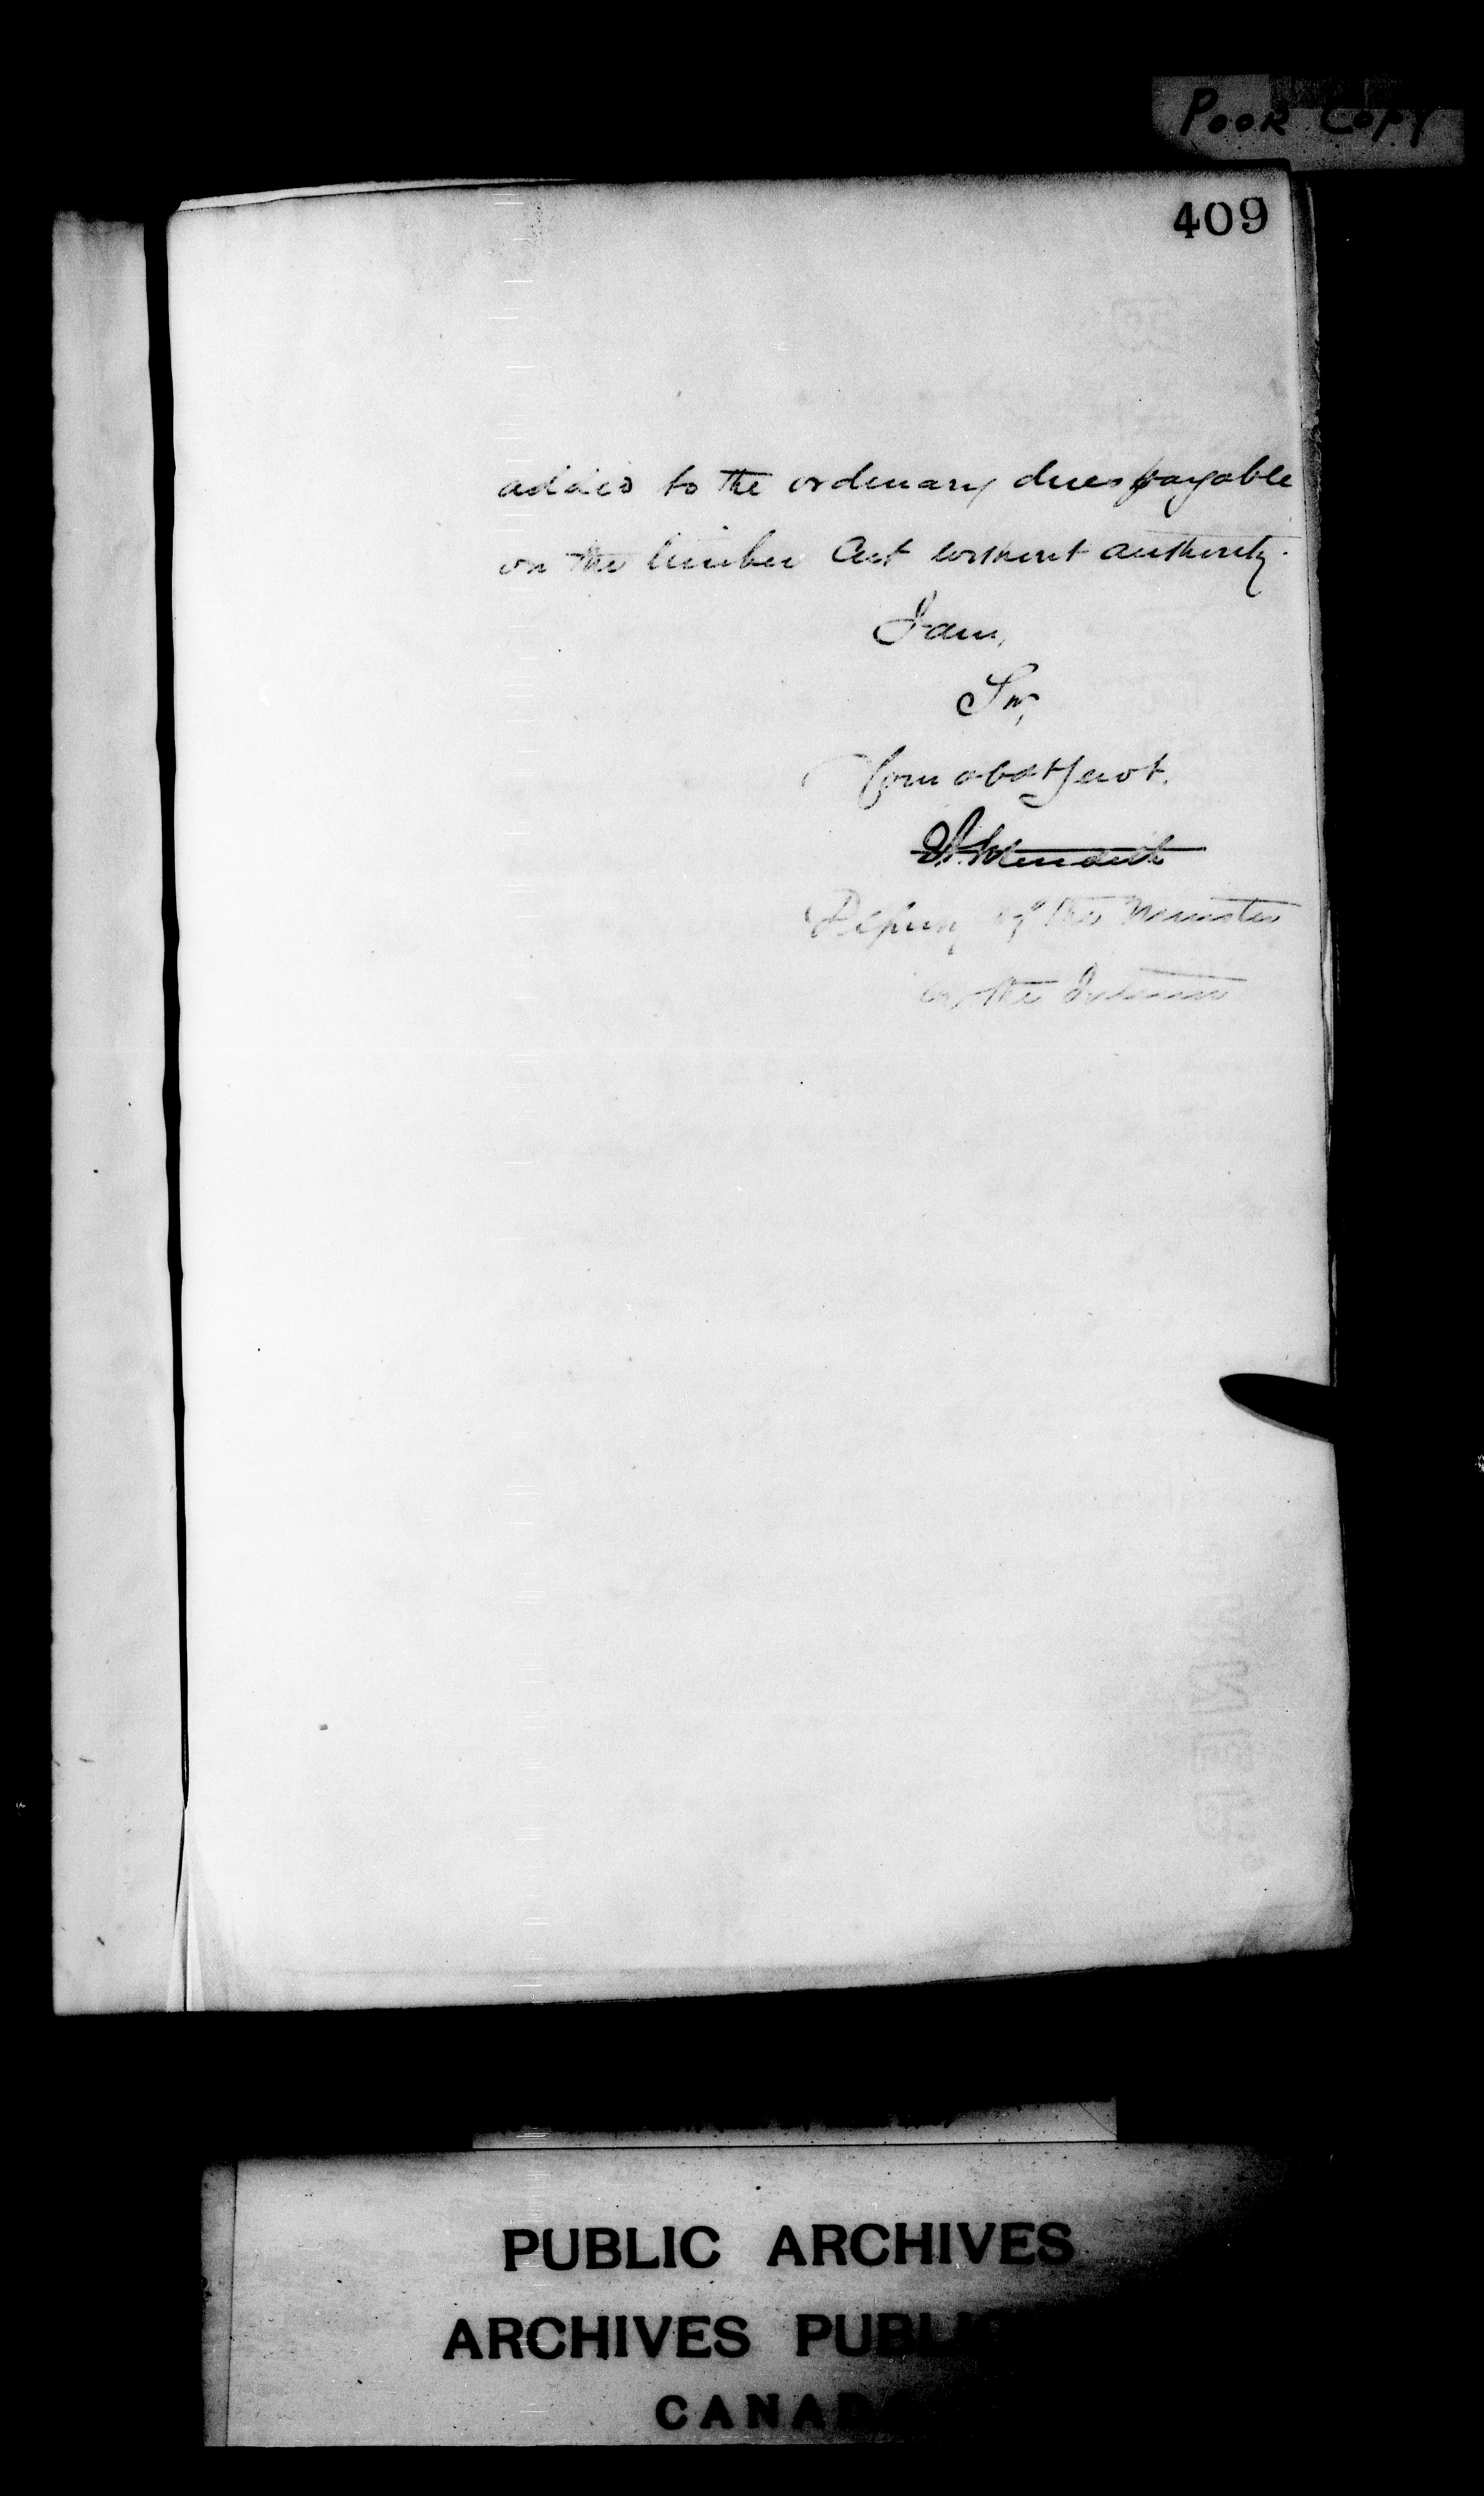 POOR COPY
409
added to the ordinary dues payable
on the timber cut without authority.
I am,
Sir,
Your obdt servt.
E.A. Meredith
Deputy of the Minister
of the Interior
PUBLIC ARCHIVES
ARCHIVES PUBLIC
CANADA